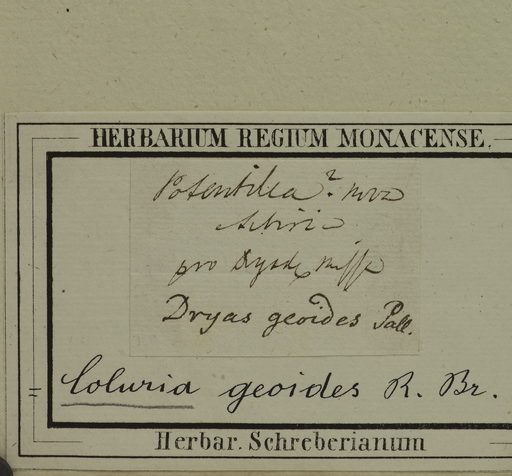 HERBARIUM REGIUM MONACENSE.
Potentilla? nova
Sibiric
pro
Dryas geoides Pall.
= Coluria geoides R. Br.
Herbar. Schreberianum